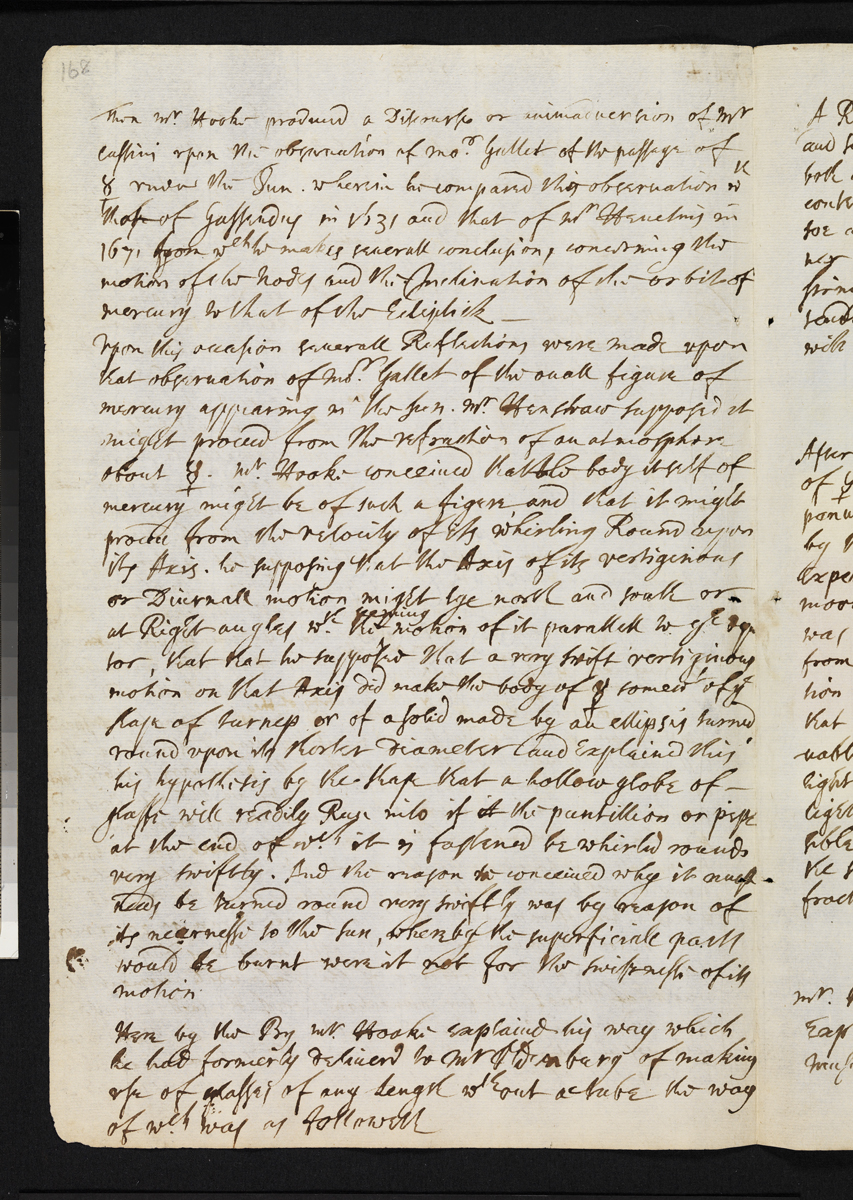 168
Then mr. Hooke produced a Discourse or animadversion of mr
Cassini upon the observation of mor. Gallet of the passage of
☿ under the Sun. wherein he compared this observation wth
those of Gassendus in 1631 and that of mr Hevelius in
1671 upon wch he makes severall conclusions, concerning the
motion of the nodes and the Inclination of the orbit of
mercury to that of the Ecliptick —
Upon this occasion severall Reflections were made upon
that observation of mor. Gallet of the ovall figure of
mercury appearing in the sun. mr. Henshaw supposed it
might proceed from the refraction of an atmosphere
about ☿. mr. Hooke conceived that the body it self of
mercury might be of such a figure and that it might
proceed from the velocity of its whirling Round upon
its Axis. he supposing that the Axis of its vertiginous
or Diurnall motion might lye north and south or
at Right angles wth the turning motion of it parallell to ye equa
tor, that he supposed that a very swift vertiginous
motion on that Axis did make the body of ☿ somewt of ye
shape of turnep or of a solid made by an ellipsis turned
round upon its shorter Diameter and Explained this
his hypothesis by the shape that a hollow globe of —
glasse will readily Run into if the puntillion or pipe
at the end of wch it is fastened be whirled round
very swiftly. And the reason he conceived why it must
needs be turned round very swiftly was by reason of
its nearnesse to the sun, whereby the superficiall parts
would be burnt were it not for the swiftnesse of its
motion.
Here by the By mr. Hooke explained his way which
he had formerly Deliverd to mr Oldenburg of making
use of glasses of any Length wthout a tube the way
of wch was as followeth
A R
and
both
conte
for
nex
with
After
of ☿
by
Expe
moo
was
from
tion
that
light
the
fract
mr.
Exp